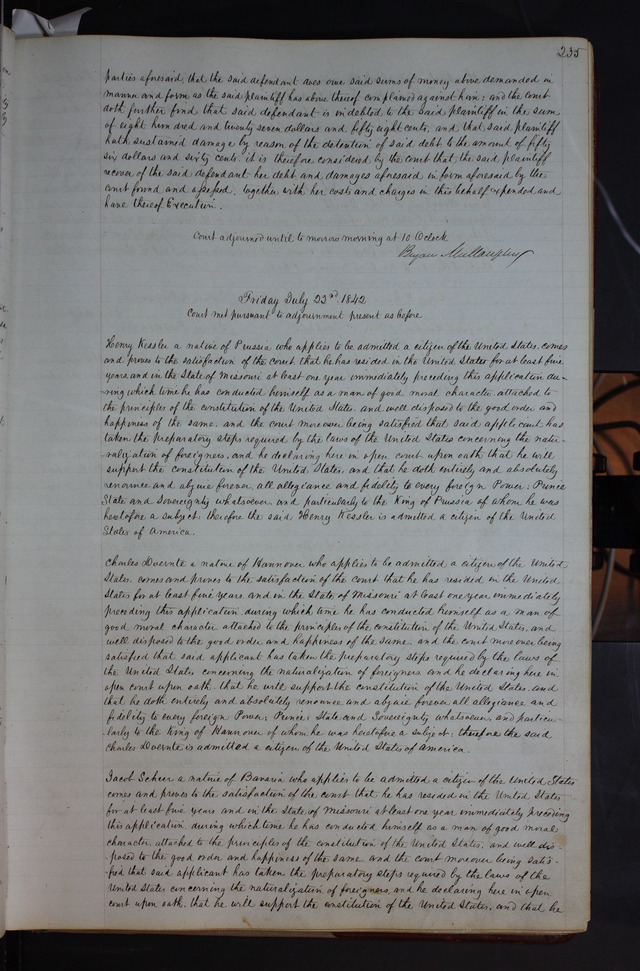 235
parties aforesaid, that the said defendant does owe said sums of money above demanded in
manner and form as the said plaintiff has above thereof complained against him: and the court
doth further find that said defendant is indebted to the said plaintiff in the sum
of eight hundred and twenty seven dollars and fifty eight cents, and that said plaintiff
hath sustained damage by reason of the detention of said debt to the amount of fifty
six dollars and sixty cents. it is therefore considered by the court that the said plaintiff
recover of the said defendant her debt and damages aforesaid in form aforesaid by the
court found and assessed, together with her costs and charges in this behalf expended and
have thereof Execution.
Court adjourned until to morrow morning at 10 Oclock
Bryan Mullanphy
Friday July 22nd 1842
Court met pursuant to adjournment present as before
Henry Kessler a native of Prussia who applies to be admitted a citizen of the United States. comes
and proves to the satisfaction of the court that he has resided in the United States for at least five
years and in the State of Missouri at least one year immediately preceding this application du-
ring which time he has conducted himself as a man of good moral character attached to
the principles of the constitution of the United States. and well disposed to the good order and
happiness of the same. and the court moreover being satisfied that said applicant has
taken the preparatory steps required by the laws of the United States concerning the natu-
ralization of foreigners. and he declaring here in open court upon oath that he will
support the constitution of the United States. and that he doth entirely and absolutely
renounce and abjure forever all allegiance and fidelity to every foreign Power; Prince
State and Sovereignty whatsoever and particularly to the King of Prussia of whom he was
heretofore a subject. therefore the said Henry Kessler is admitted a citizen of the United
States of America.
Charles Doernte a native of Hannover who applies to be admitted a citizen of the United
States. comes and proves to the satisfaction of the court that he has resided in the United
States for at least five years and in the State of Missouri at least one year immediately
preceding this application during which time he has conducted himself as a man of
good moral character attached to the principles of the constitution of the United States. and
well disposed to the good order and happiness of the same. and the court moreover being
satisfied that said applicant has taken the preparatory steps required by the laws of
the United States concerning the naturalization of foreigners and he declaring here in
open court upon oath. that he will support the constitution of the United States. and
that he doth entirely and absolutely renounce and abjure forever all allegiance and
fidelity to every foreign Power; Prince State and Sovereignty whatsoever, and particu-
larly to the King of Hannover of whom he was heretofore a subject: therefore the said
Charles Doernte is admitted a citizen of the United States of America.
Jacob Scheer a native of Bavaria who applies to be admitted a citizen of the United States
comes and proves to the satisfaction of the court that he has resided in the United States
for at least five years and in the State of Missouri at least one year immediately preceding
this application. during which time he has conducted himself as a man of good moral
character attached to the principles of the constitution of the United States. and well dis-
posed to the good order and happiness of the same and the court moreover being satis-
fied that said applicant has taken the preparatory steps required by the laws of the
United States concerning the naturalization of foreigners, and he declaring here in open
court upon oath. that he will support the constitution of the United States. and that he